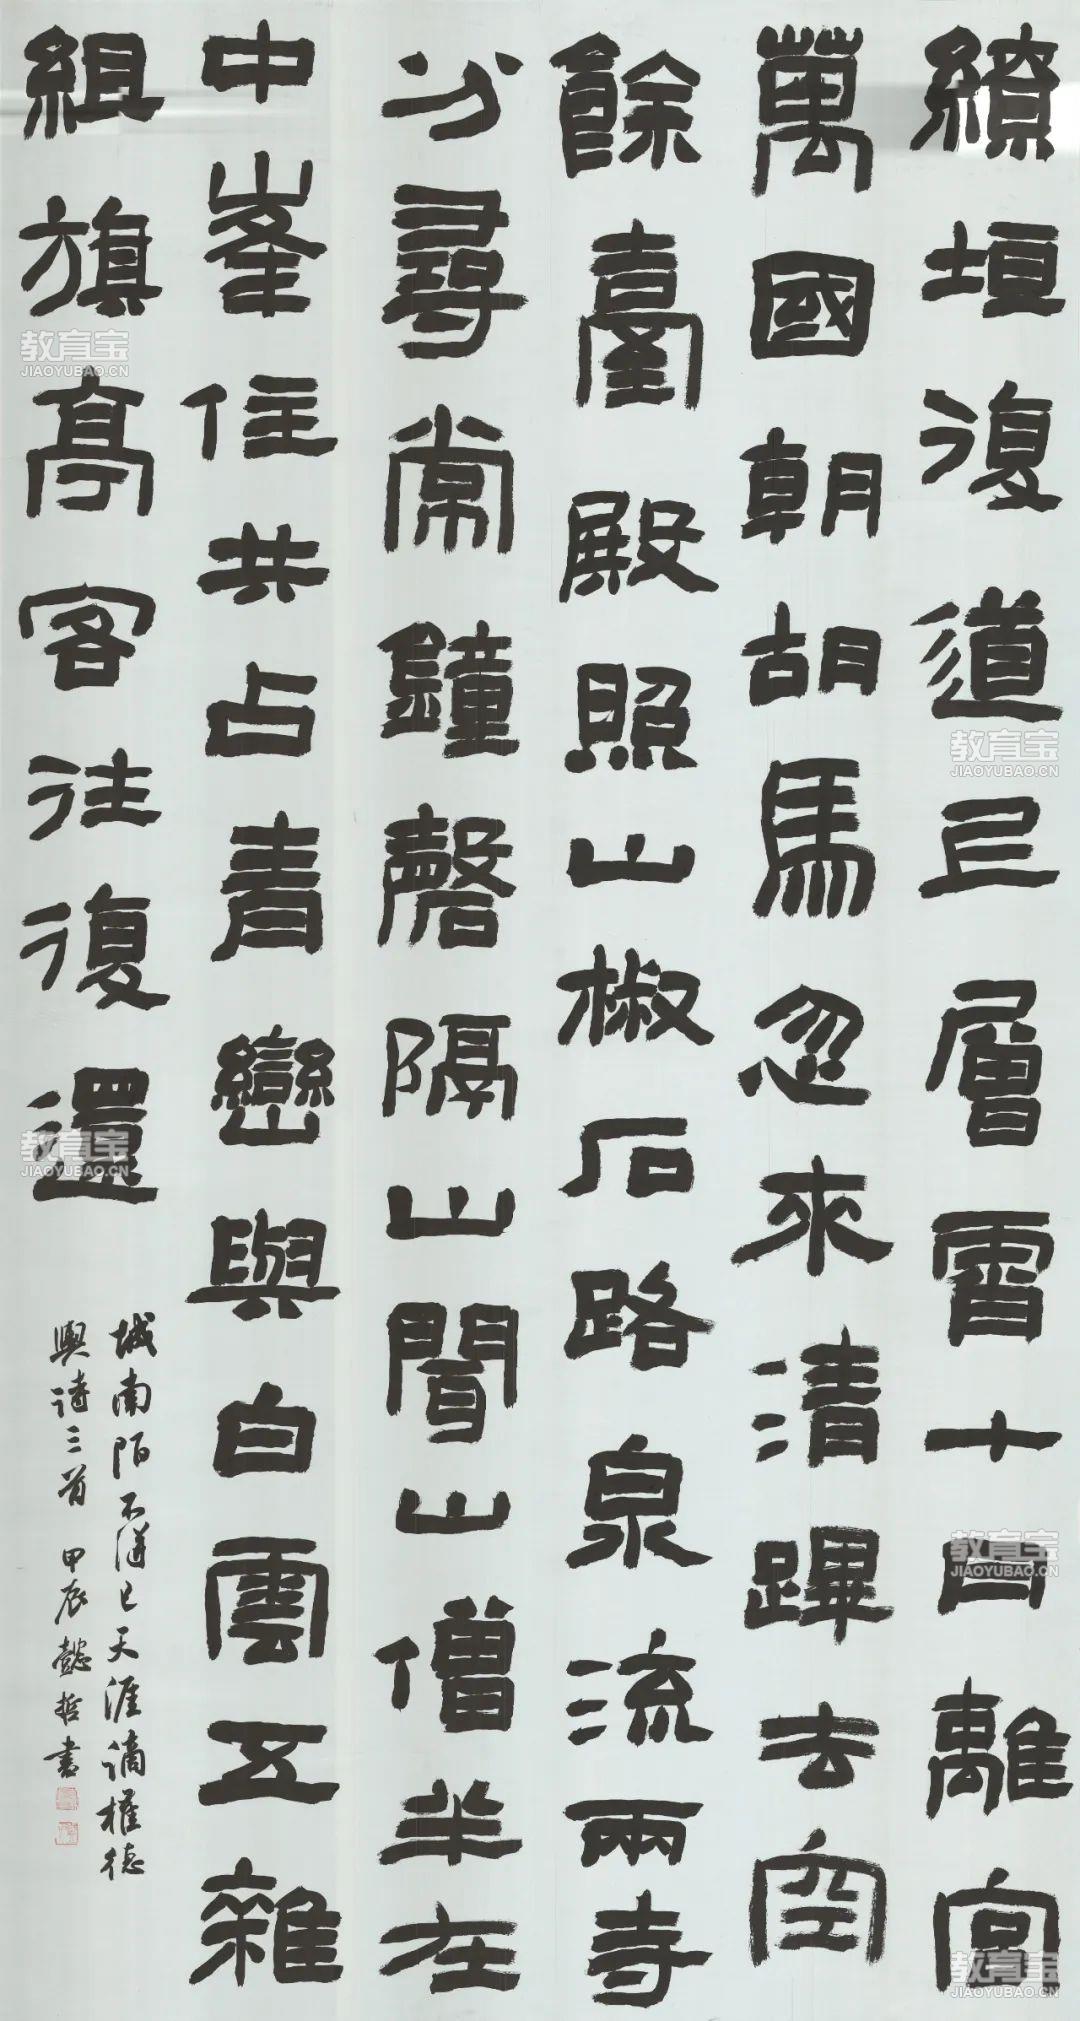 繚垣復道上層霄十月離宮
萬國朝胡馬忽來清蹕去空
餘臺殿照山椒石路泉流兩寺
分尋常鐘磬隔山聞山僧半在
中峯住共占青巒與白雲五雜
組旗亭客往復還
城南陌不得已天涯謫權德
輿詩三首 甲辰懿哲書
教育宝
JIAOYUBAO.CN
教育宝
JIAOYUBAO.CN
教育宝
JIAOYUBAO.CN
教育宝
JIAOYUBAO.CN
教育宝
JIAOYUBAO.CN